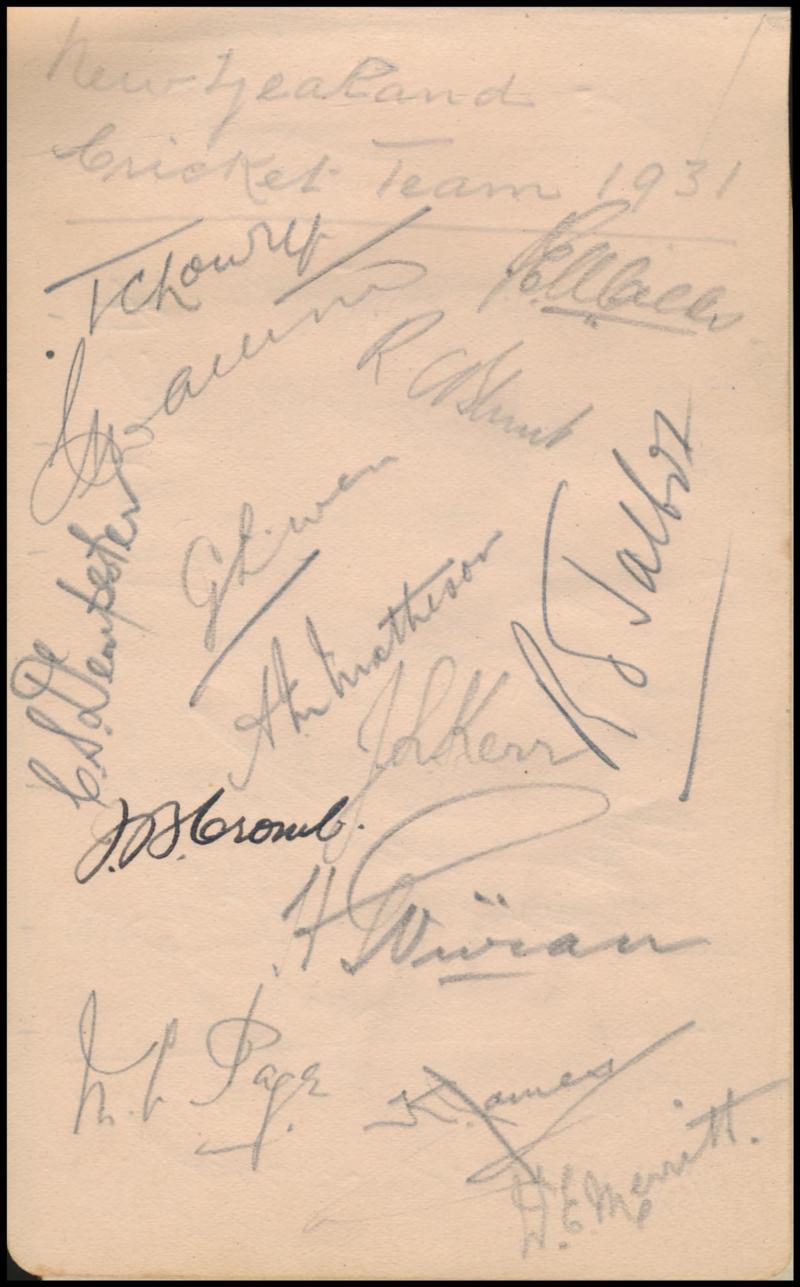 New Zealand
Cricket Team 1931
T C Lowry
C F W Allcott
R C Blunt
G L Weir
C.S. Dempster
A M Matheson
R O Talbot
J L Kerr
I.B. Cromb.
H G Vivian
M. L. Page
K. C. James
W. E. Merritt.